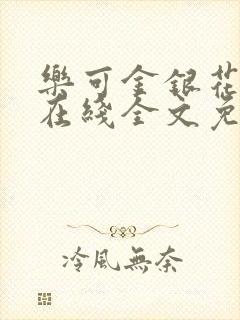 樂可金銀花
在綫全文免
冷風無奈